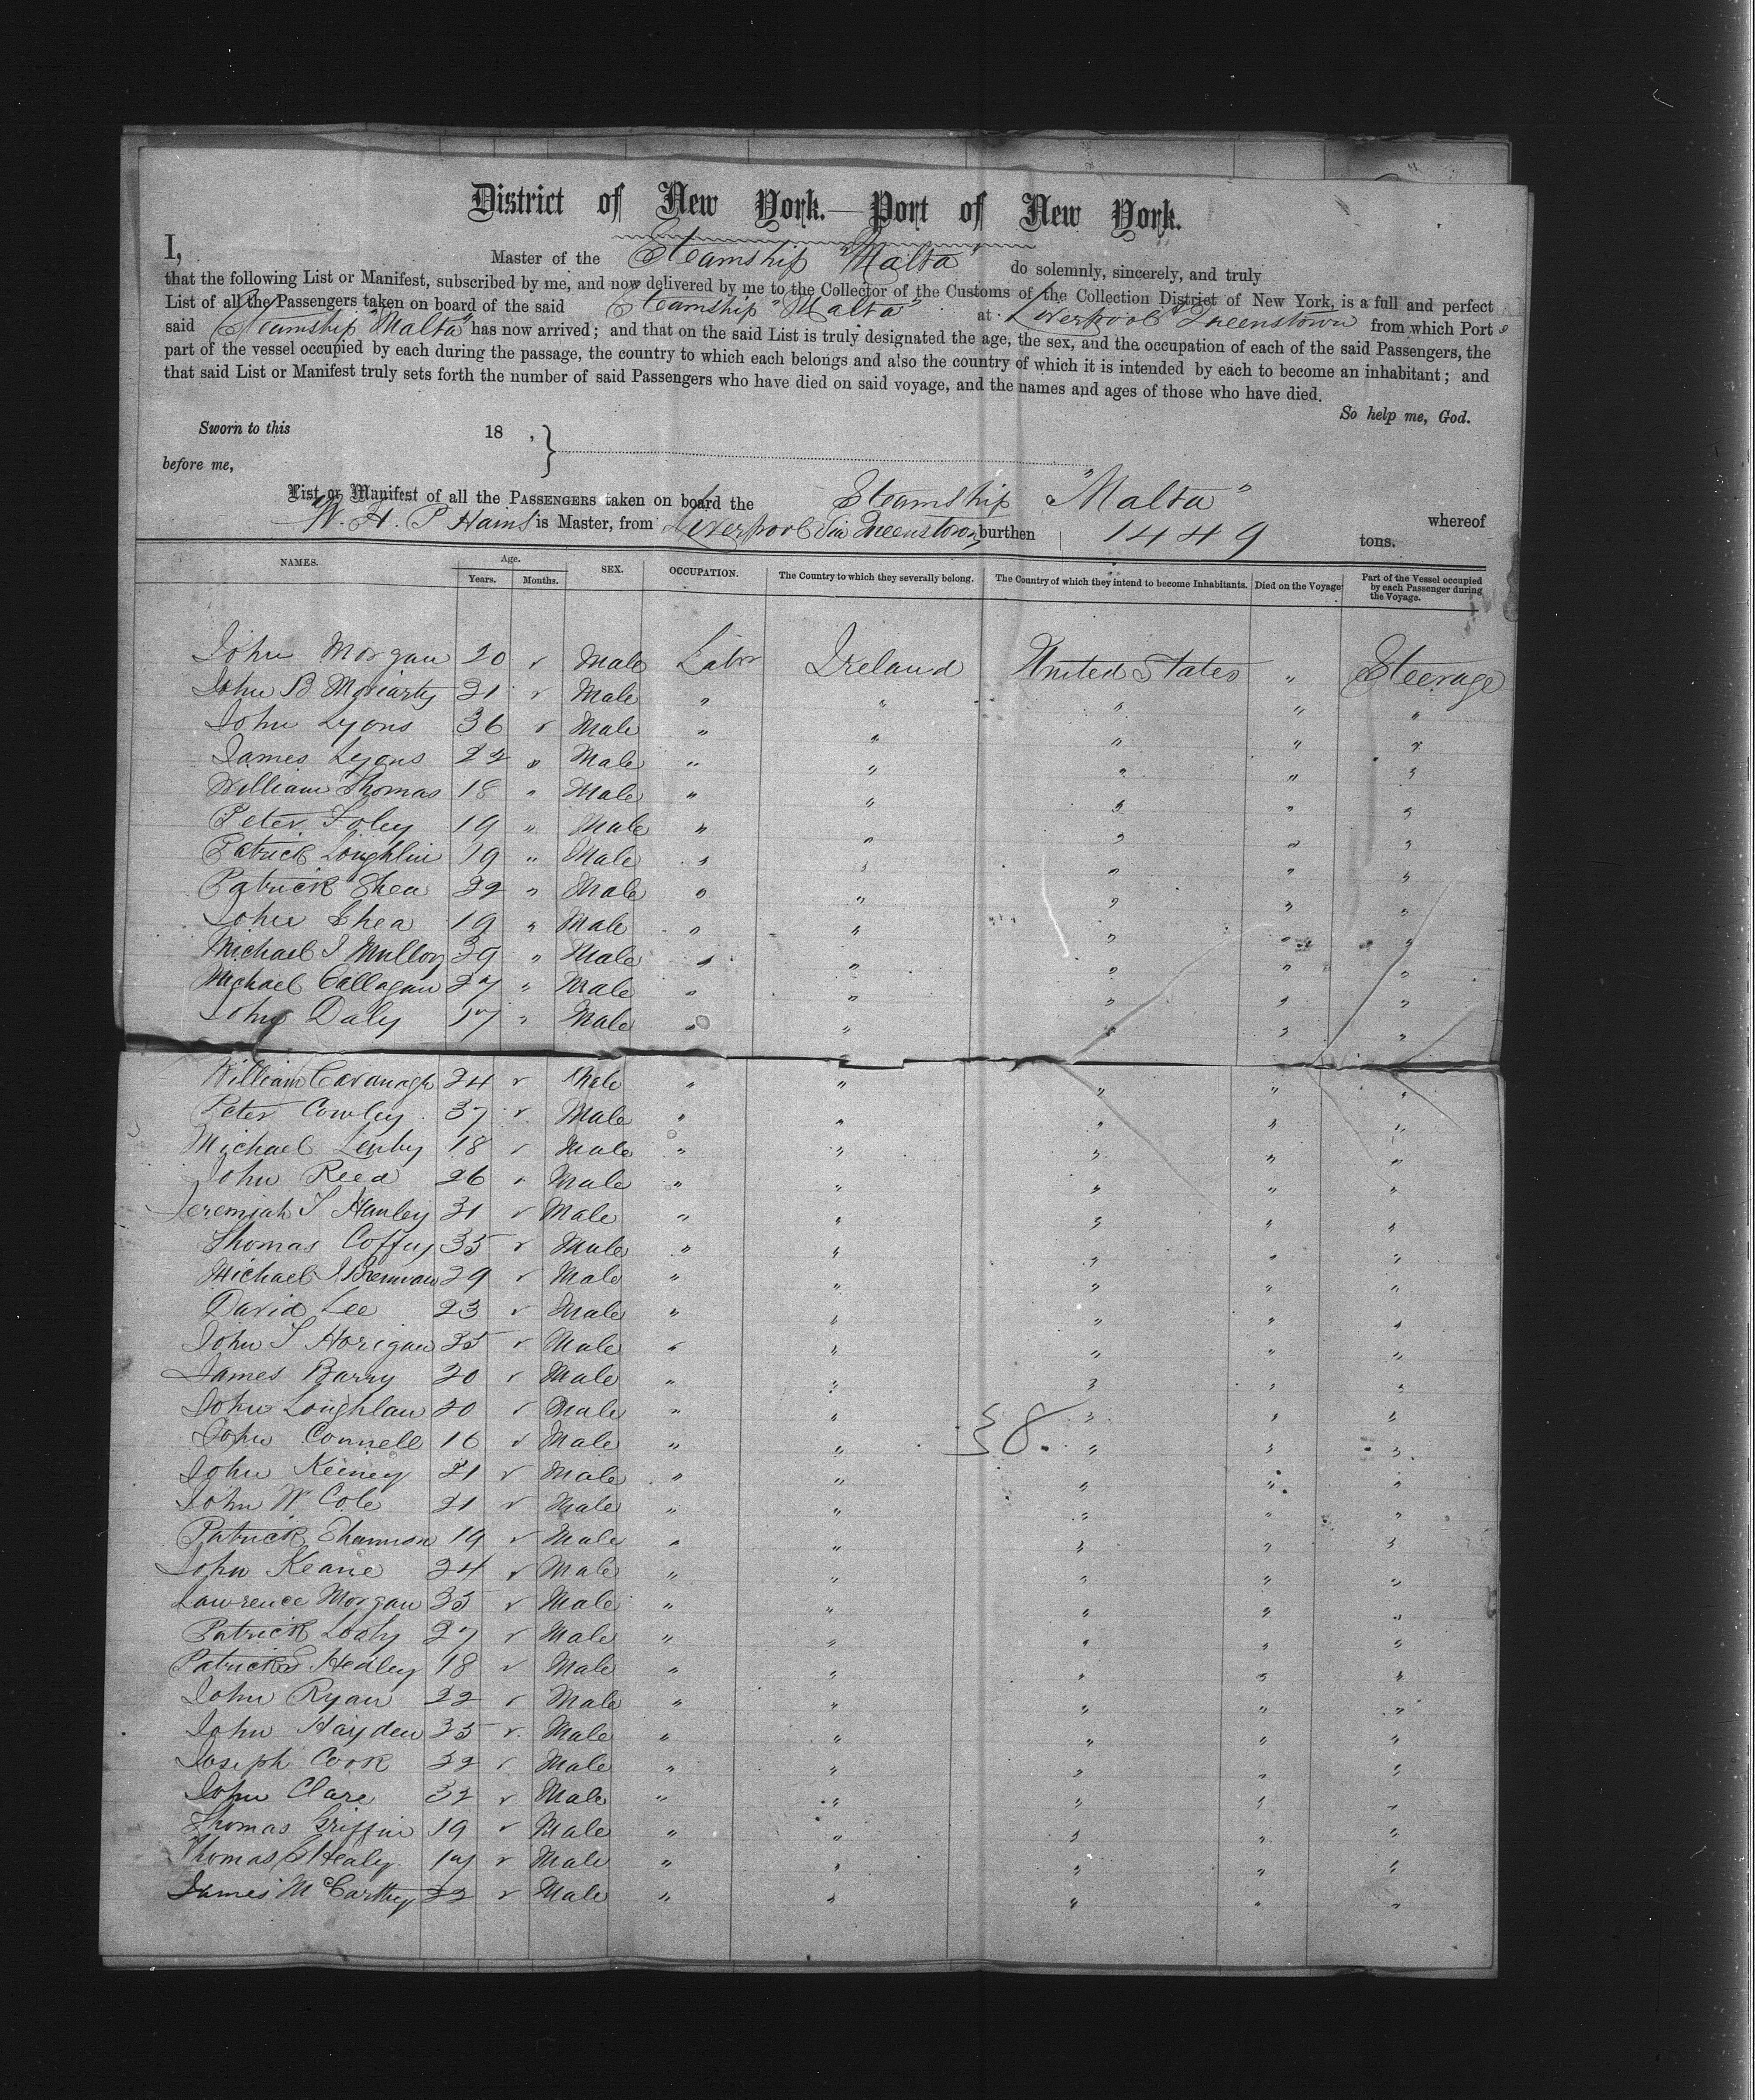 District of New York.—Port of New York.
I, Master of the Steamship "Malta" do solemnly, sincerely, and truly
that the following List or Manifest, subscribed by me, and now delivered by me to the Collector of the Customs of the Collection District of New York, is a full and perfect
List of all the Passengers taken on board of the said Steamship "Malta" at Liverpool & Queenstown from which Port
said Steamship "Malta" has now arrived; and that on the said List is truly designated the age, the sex, and the occupation of each of the said Passengers, the
part of the vessel occupied by each during the passage, the country to which each belongs and also the country of which it is intended by each to become an inhabitant; and
that said List or Manifest truly sets forth the number of said Passengers who have died on said voyage, and the names and ages of those who have died.
So help me, God.
Sworn to this 18 ,
before me,
List or Manifest of all the PASSENGERS taken on board the Steamship "Malta" whereof
W. H. P Hains is Master, from Liverpool via Queenstown burthen 1449 tons.
NAMES. Age. Years. Months. SEX. OCCUPATION. The Country to which they severally belong. The Country of which they intend to become Inhabitants. Died on the Voyage Part of the Vessel occupied by each Passenger during the Voyage.
John Morgan 20 " Male Labr Ireland United States " Steerage
John B Moriarty 21 " Male " " " " "
John Lyons 36 " Male " " " " "
James Lyons 22 " Male " " " " "
William Thomas 18 " Male " " " " "
Peter Foley 19 " Male " " " " "
Patrick Loughlin 19 " Male " " " " "
Patrick Shea 22 " Male " " " " "
John Shea 19 " Male " " " " "
Michael J Mulloy 39 " Male " " " " "
Michael Callagan 27 " Male " " " " "
John Daly 17 " Male " " " " "
William Cavanagh 24 " Male " " " " "
Peter Cowley 37 " Male " " " " "
Michael 18 " Male " " " " "
John Reed 26 " Male " " " " "
Jeremiah T Hanley 31 " Male " " " " "
Thomas Coffey 35 " Male " " " " "
Michael J Brennan 29 " Male " " " " "
David Lee 23 " Male " " " " "
John T Horigan 35 " Male " " " " "
James Barry 20 " Male " " " " "
John Loughlan 20 " Male " " " " "
John Connell 16 " Male " " 38. " " "
John Keiney 21 " Male " " " " "
John W Cole 21 " Male " " " " "
Patrick Shannon 19 " Male " " " " "
John Keane 24 " Male " " " " "
Lawrence Morgan 35 " Male " " " " "
Patrick Looby 27 " Male " " " " "
Patrick Hedley 18 " Male " " " " "
John Ryan 22 " Male " " " " "
John Hayden 35 " Male " " " " "
Joseph Cook 32 " Male " " " " "
John Clare 32 " Male " " " " "
Thomas Griffin 19 " Male " " " " "
Thomas Healy 17 " Male " " " " "
James McCarthy 22 " Male " " " " "